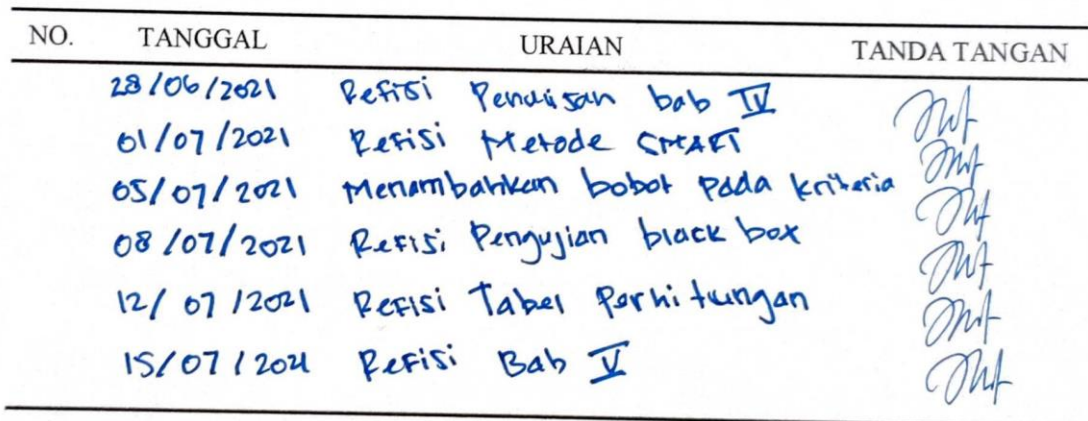 NO. TANGGAL URAIAN TANDA TANGAN
28/06/2021 Refisi Penulisan bab IV
01/07/2021 Refisi Metode SMART
05/07/2021 Menambahkan bobot pada kriteria
08/07/2021 Refisi Pengujian black box
12/07/2021 Refisi Tabel Perhitungan
15/07/2021 Refisi Bab V